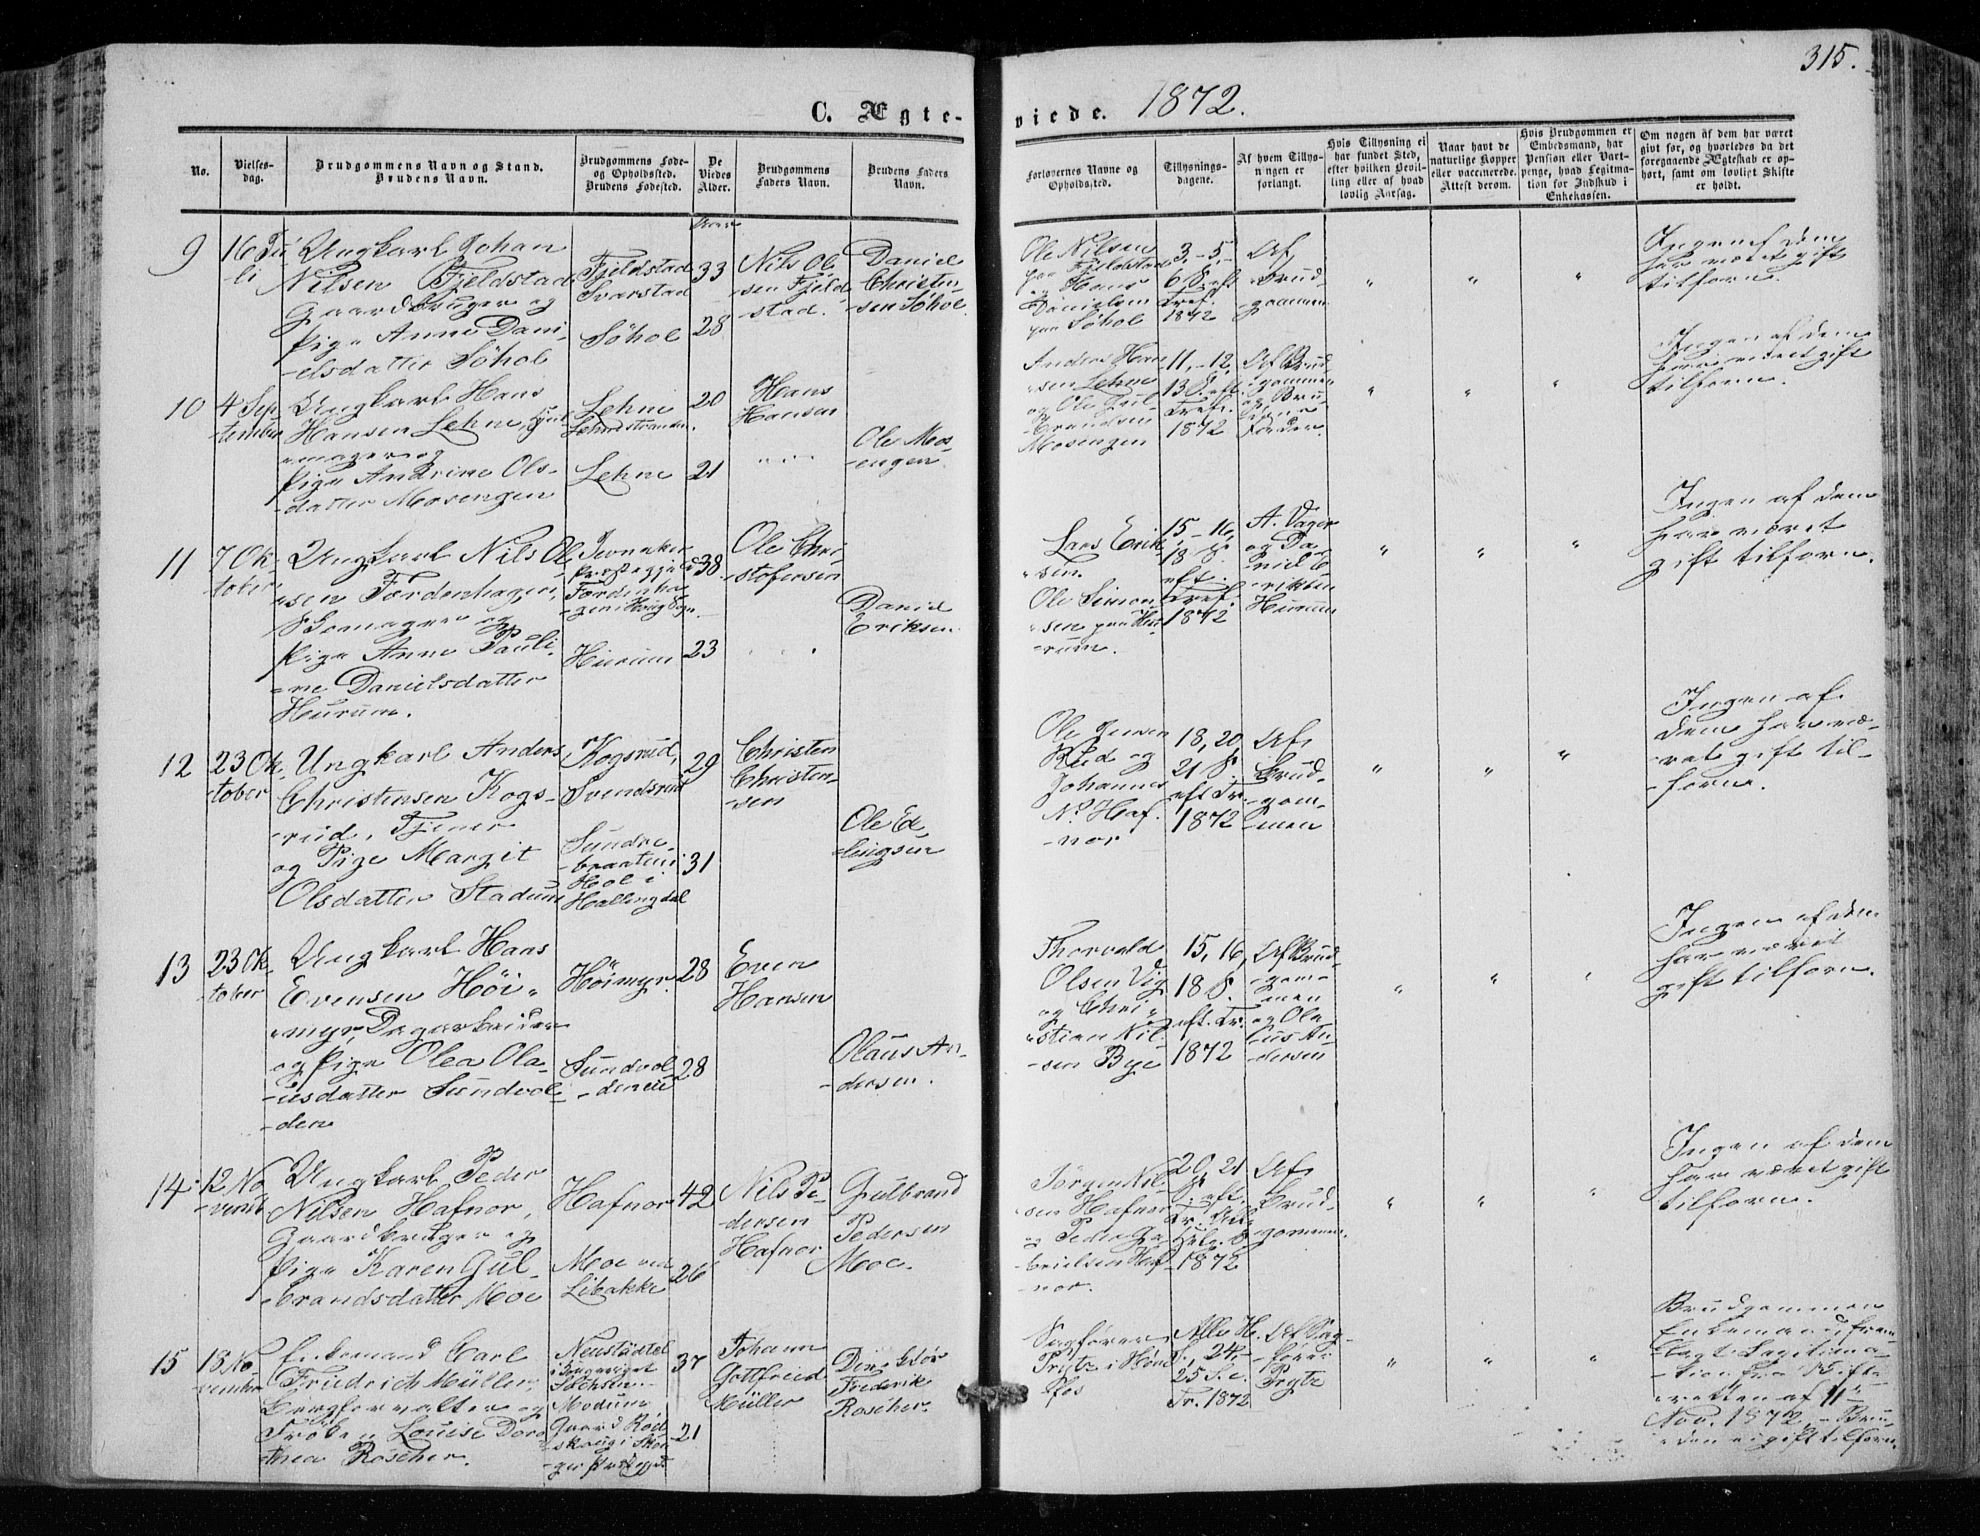 315.
C. Ægte-
viede. 1872.
No.
Vielses-
dag.
Brudgommens Navn og Stand.
Brudens Navn.
Brudgommens Føde-
og Opholdssted.
Brudens Fødested.
De
Viedes
Alder.
Brudgommens
Faders Navn.
Brudens Faders
Navn.
Forlovernes Navne og
Opholdssted.
Tillysnings-
dagene.
Af hvem Tillys-
ningen er
forlangt.
Hvis Tillysning ei
har fundet Sted,
efter hvilken Bevil-
ling eller af hvad
lovlig Aarsag.
Naar havt de
naturlige Kopper
eller vaccinerede.
Attest derom.
Hvis Brudgommen er
Embedsmand, har
Pension eller Vart-
penge, hvad Legitima-
tion for Indskud i
Enkekassen.
Om nogen af dem har været
givt før, og hvorledes da det
foregaaende Ægteskab er op-
hørt, samt om lovligt Skifte
er holdt.
9
16 Ju-
li
Ungkarl Johan
Nilsen Fjeldstad
Gaardbruger og
Pige Anne Dani-
elsdatter Søhol
Fjeldstad
Svarstad
Søhol
33
28
Nils Ol-
sen Fjeld-
stad.
Daniel
Christen-
sen Søhol.
Ole Nilsen
paa Fjeldstad
og Hans
Danielsen
paa Søhol
3, - 5, -
6 S. eft
Tref.
1872
Af
Brud-
gommen
" " "
Ingen af dem
har været gift
tilforn.
10
4 Sep-
tember
Ungkarl Hans
Hansen Lehne,
og
Pige Andrine Ols-
datter Mosengen
Lehne
Lehnestranden.
Lehne
20
21
Hans
Hansen
Ole Mos-
engen.
Anders Han-
sen Lehne
og Ole Gul-
brandsen
Mosengen
11, - 12,
13 S. eft.
Tref.
1872
Af Brud-
gommen
og Bru-
dens
Fader.
" " "
Ingen af dem
har været gift
tilforn.
11
7 Ok-
tober
Ungkarl Nils Ol-
sen Fordenhagen,
Skomager og
Pige Anne Pauli-
ne Danielsdatter
Hurum.
Jevnaker
Præstegjeld
Fordenha-
gen i Houg Sogn
Hurum
38
23
Ole Chri-
stofersen
Daniel
Eriksen
Lars Erik-
sen.
Ole Simon-
sen paa Hur-
rum.
15 - 16,
18 S.
eft.
Tref.
1872
A. Vager
og Da-
niel E-
riksen
Hurum
" " "
Ingen af dem
har været
gift tilforn.
12
23 Ok-
tober
Ungkarl Anders
Christensen Kogs-
rud, Tjener
og Pige Margit
Olsdatter Stadum
Kogsrud,
Svendsrud
Sundre-
braaten i
Hol i
Hallingdal
29
31
Christen
Christen-
sen
Ole Ed-
lingsen
Ole Jensen
Rud og
Johannes
N. Haf-
nor
18, 20,
21 S.
eft Tr.
1872
Af
Brud-
gom-
men
" " "
Ingen af
dem har væ-
ret gift til-
forn.
13
23 Ok-
tober
Ungkarl Hans
Evensen Høi-
myr, Dagarbeider
og Pige Olea Ola-
usdatter Sundvol-
den
Høimyr.
Sundvol-
denei
28
28
Even
Hansen
Olaus An-
dersen.
Thorvald
Olsen Vig
og Chri-
stian Nil-
sen Bye
15, 16,
18 S.
eft. Tr.
1872
Af Brud-
gom-
men
og Ola-
us An-
dersen
" " "
Ingen af dem
har været
gift tilforn.
14
12 No-
vemb
Ungkarl Peder
Nilsen Hafnor,
Gaardbruger og
Pige Karen Gul-
brandsdatter Moe
Hafnor
Moe ved
Libakke
42
26
Nils Pe-
dersen
Hafnor
Gulbrand
Pedersen
Moe.
Jørgen Nil-
sen Hafnor
og Peder Ga-
brielsen Haf-
nor.
20, 21
S. eft.
Tr. Alle
Helg. S
1872
Af
Brud-
gommen.
" " "
Ingen af dem
har været gift
tilforn.
15
18 No-
vember
Enkemand Carl
Friedrich Müller,
Bergforvalter og
Frøken Louise Doro-
thea Roscher.
Neustädtel
i Kongeriget
Sachsen.
Modum
Gaard Rød-
skoug i Skou-
ger Prstegjd.
37
21
Johann
Gottfried
Müller
Direktør
Frederik
Roscher.
Sagfører
Prytz i Høne-
fos
Alle H.
S., 24,
25 S. e.
Tr. 1872
Af Sag-
fører
Prytz
" " "
Brudgommen
Enkemand, frem-
lagt Legitima-
tion fra Skifte-
retten af 11te
Nov. 1872, - Bru-
den ei gift tilforn.